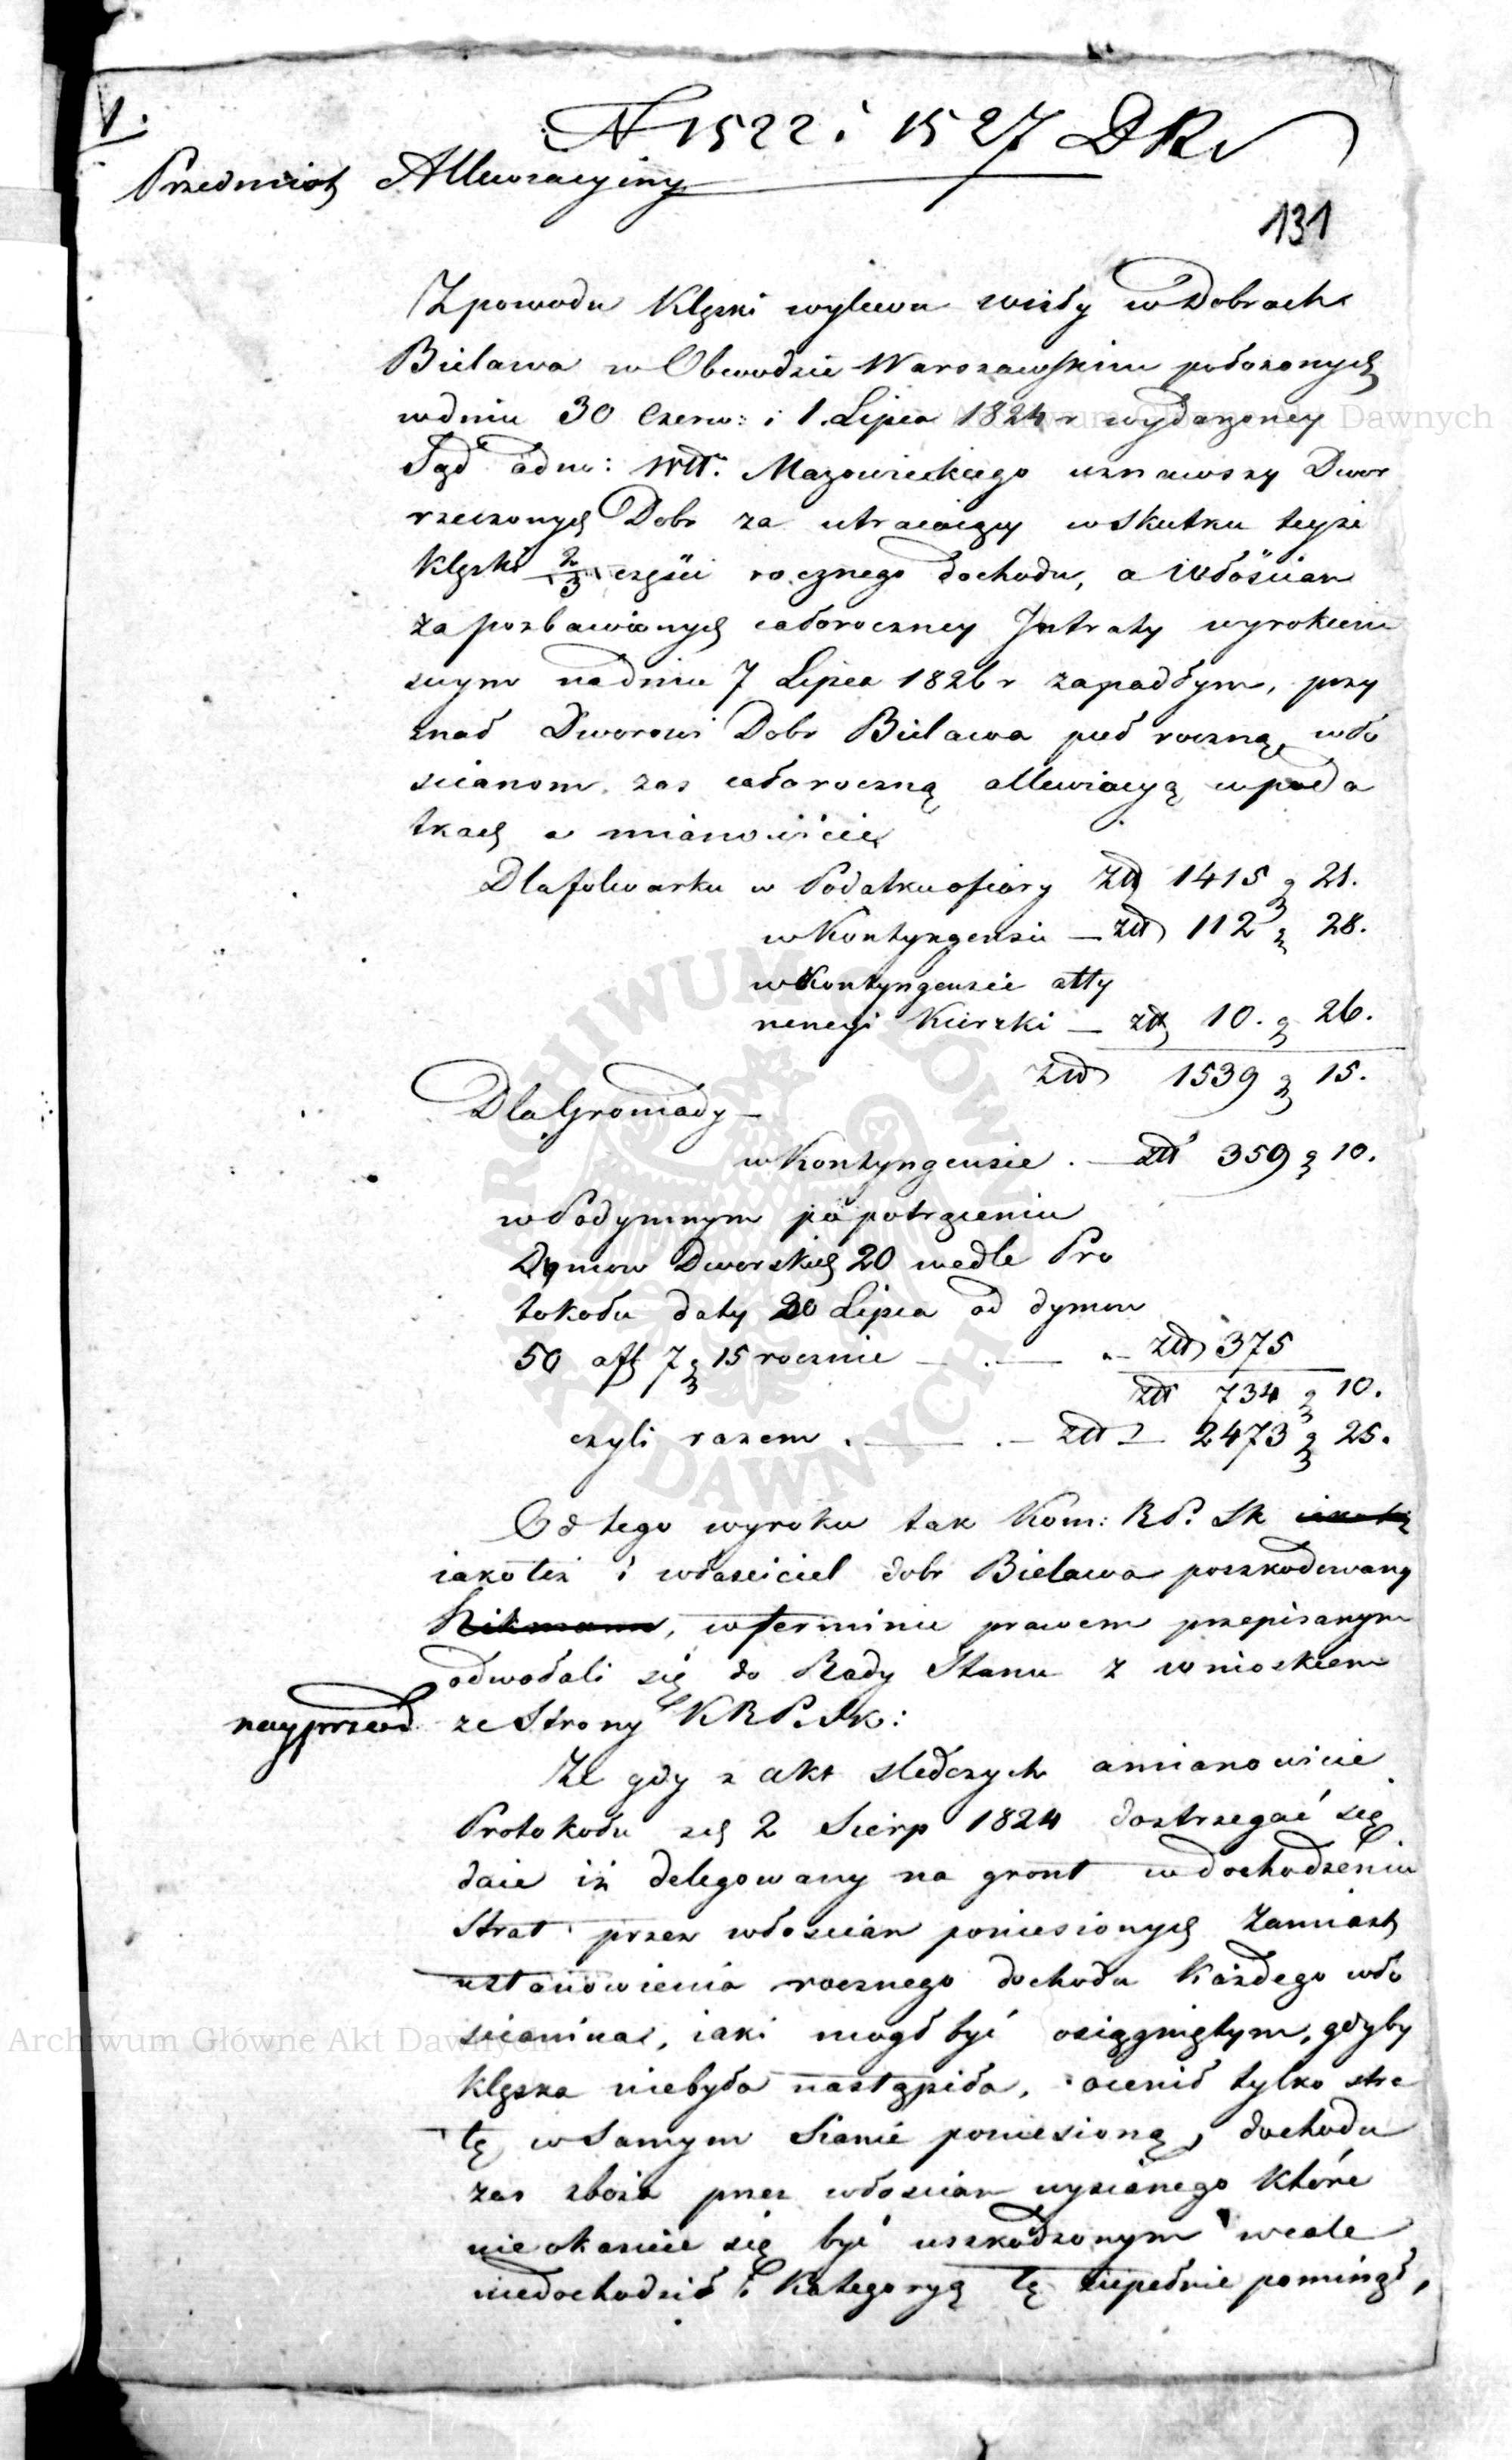 1.
N 1522 i 1527 DR
Przedmiot Allewiacyiny
131
Z powodu Klęski wylewu wisły w Dobrach
Bielawa w Obwodzie Warszawskim położonych
w dniu 30 Czerw: i 1. Lipca 1824 r wydarzoney
Sąd adm: Wtt. Mazowieckiego uznawszy Dwor
rzeczonych Dobr za utracaiący w skutku teyże
Klęski 2/3 części rocznego dochodu, a Włościan
za pozbawionych całoroczney Intraty wyrokiem
swym na dniu 7 Lipca 1826 r zapadłym, przy
znał Dworowi Dobr Bielawa puł roczną, wło
scianom zas całoroczną allewiacyą w poda
tkach a mianowicie
Dla folwarku w Podatku ofiary Złł 1415 g 21.
w Kontyngensie — złł 112 g 28.
w Kontyngensie atty
nencyi Kierzki — złł 10. g 26.
Złł 1539 g 15.
Dla Gromady —
w Kontyngensie . — złł 359 g 10.
w Podymnym po potrąceniu
Dymow Dworskich 20 wedle Pro
tokołu daty 20 Lipca od dymow
50 a fl 7 g 15 rocznie — . — . — złł 375
złł 734 g 10.
czyli razem . — . — złł — 2473 g 25.
Od tego wyroku tak Kom: R P. Sk
iakoteż i własciciel dobr Bielawa poszkodowany
Rikmann, w terminie prawem przepisanym
odwołali się do Rady Stanu z wnioskiem
nayprzod ze Strony K R P. Sk:
Że gdy z akt sledczych a mianowicie
Protokołu z d 2 Sierp 1824 dostrzegać się
daie iż delegowany na gront w dochodzeniu
strat przez włoscian poniesionych zamiast
ustanowienia rocznego dochodu Każdego wło
scianina, iaki mogł być osiągniętym, gdyby
Klęska niebyła nastąpiła, ocenił tylko stra
tę w samym Sianie poniesioną, dochodu
zas zboża przez włoscian wysianego Które
nieokazuie się być uszkodzonym wcale
niedochodził i Kategoryą tę zupełnie pominął,
Archiwum Główne Akt Dawnych
Archiwum Główne Akt Dawnych
ARCHIWUM GŁÓWNE AKT DAWNYCH